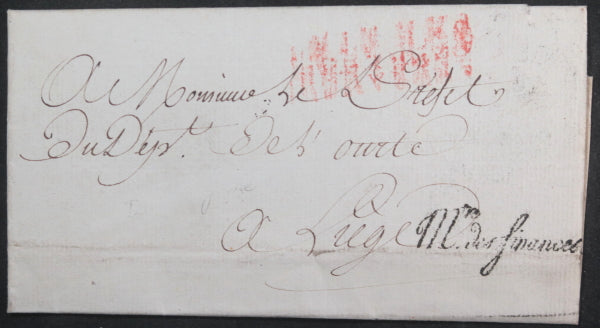 A Monsieur Le Préfet
Du Dépt. De l'ourte
A Liège
Mre. des finances